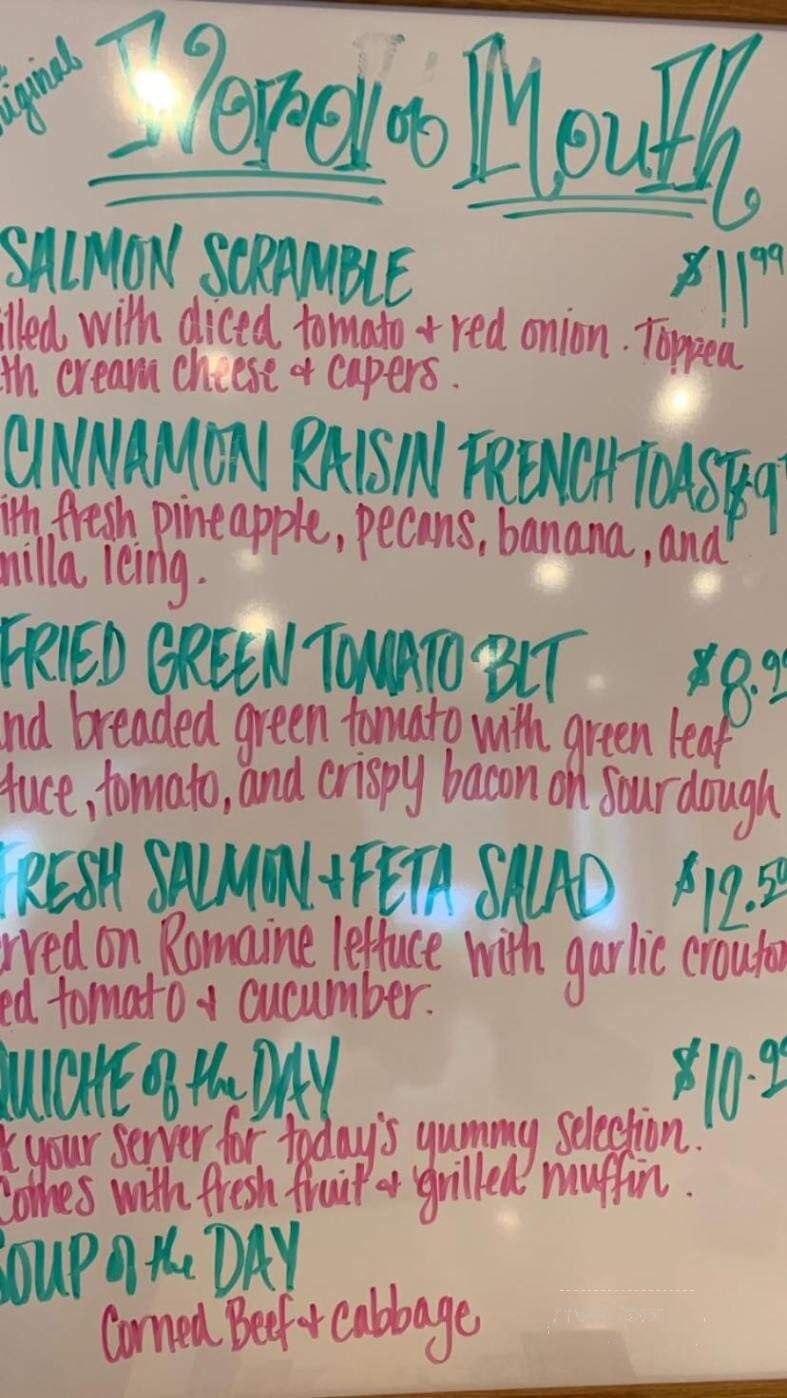 riginal
Word of Mouth
SALMON SCRAMBLE $11 99
illed with diced tomato + red onion. Topped
th cream cheese + capers.
CINNAMON RAISIN FRENCH TOAST $9
ith fresh pineapple, pecans, banana, and
nilla Icing.
FRIED GREEN TOMATO BLT $8.99
nd breaded green tomato with green leaf
tuce, tomato, and crispy bacon on Sourdough
FRESH SALMON + FETA SALAD $12.50
erved on Romaine lettuce with garlic crouton
ed tomato + cucumber.
QUICHE of the DAY $10.99
k your server for today's yummy selection.
Comes with fresh fruit + grilled muffin.
SOUP of the DAY
Corned Beef + cabbage